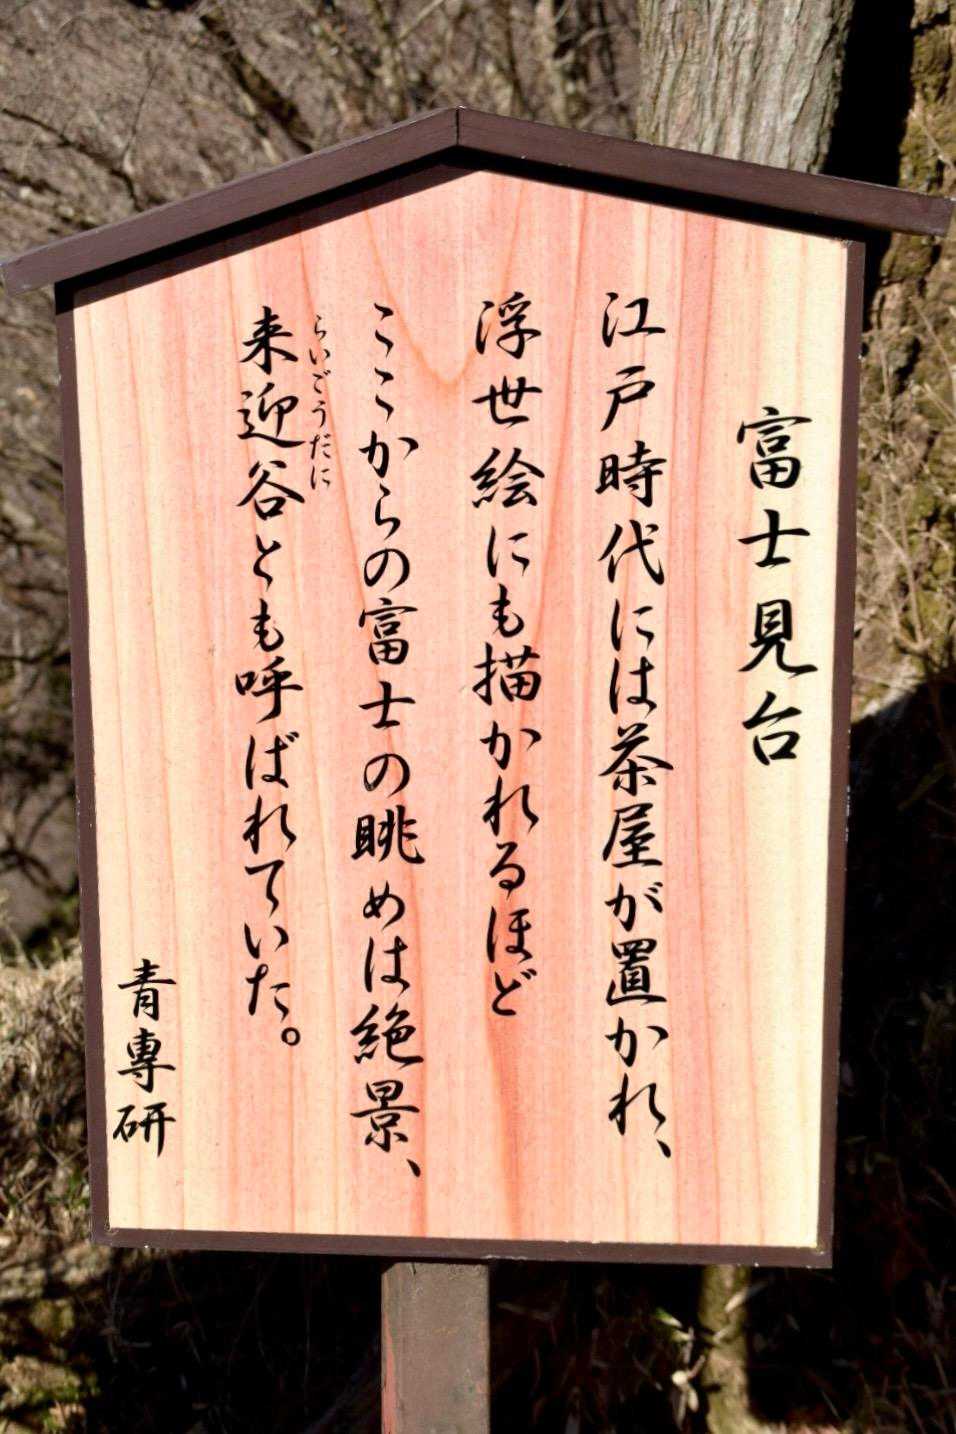 富士見台
江戸時代には茶屋が置かれ、
浮世絵にも描かれるほど
ここからの富士の眺めは絶景、
らいごうだに
来迎谷とも呼ばれていた。
青専研